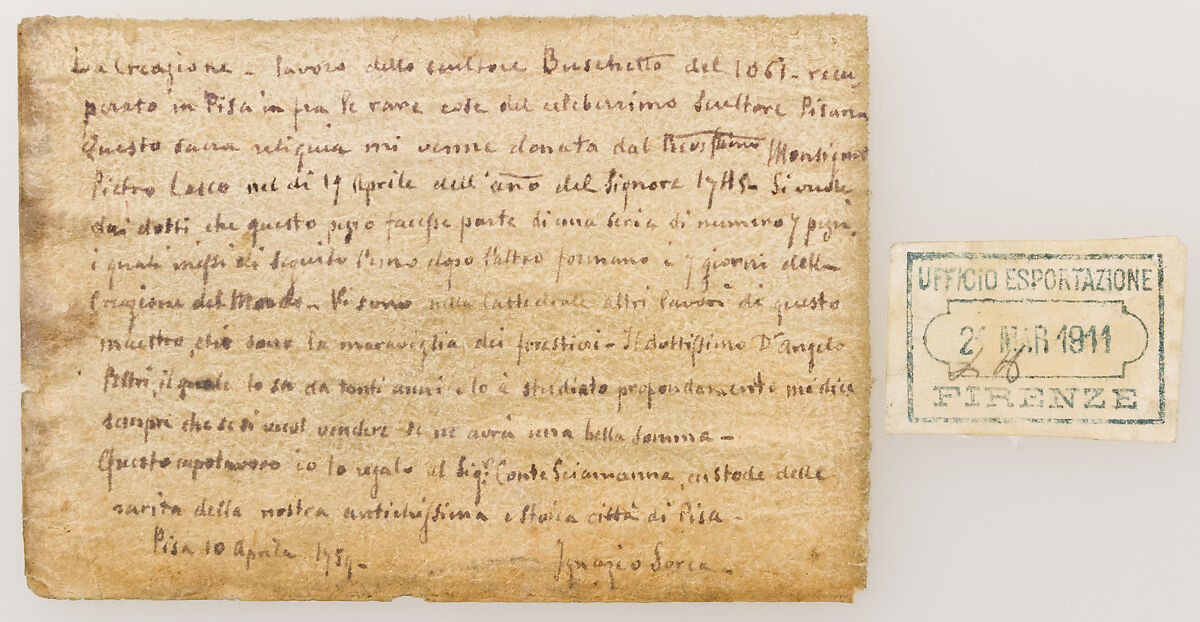 La Creazione - lavoro dello scultore Buschetto del 1061 - recu-
perato in Pisa in fra le rare cose del celeberrimo Scultore Pisano
Questo sacra reliquia mi venne donata dal Monsignor
Pietro Lasco nel di 14 Aprile dell'año del Signore 1745 - Si vuole
dai dotti che questo pezo facesse parte di una seria di numero 7 pezzi,
i quali messi di seguito l'uno dopo l'altro formano i 7 giorni della
Creazione del Mondo - Vi sono nella Cattedrale altri lavori di questo
maestro, che sono la maraviglia dei forestieri - Il dottissimo D'Angelo
Peltri, il quale lo sa da tanti anni e lo à studiato profondamente me dice
sempri che se si vuol vendere se ne avrà una bella somma -
Questo capolavoro io lo regalo al Sigr. Conte Sciamanna, custode delle
rarita della nostra antichissima e stoica città di Pisa -
Pisa 10 Aprile 1759 -
Ignazio Sorca -
UFFICIO ESPORTAZIONE
2 MAR 1911
FIRENZE